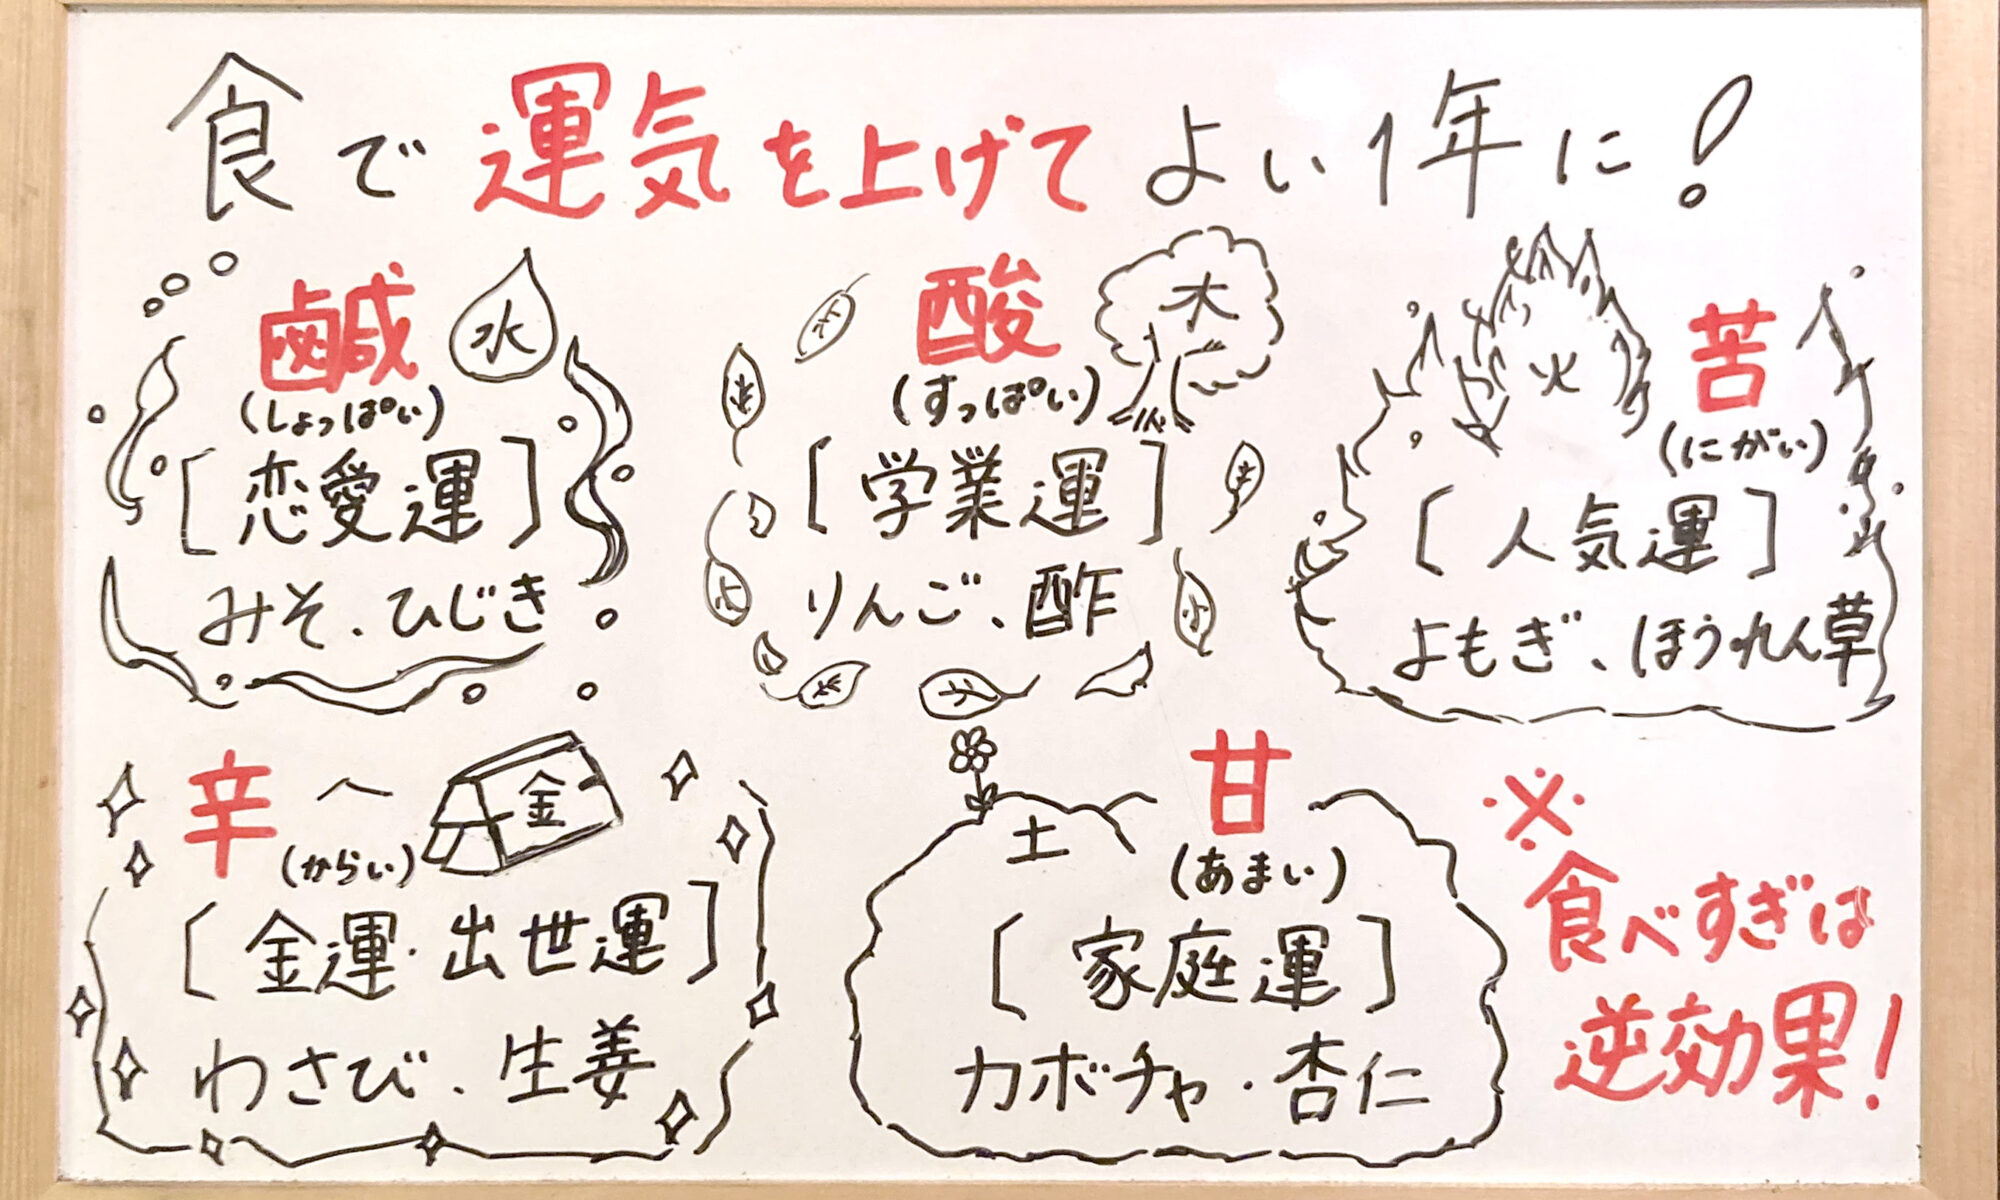 食で運気を上げてよい1年に!
鹹 水
(しょっぱい)
[恋愛運]
みそ、ひじき
酸 木
(すっぱい)
[学業運]
りんご、酢
火 苦
(にがい)
[人気運]
よもぎ、ほうれん草
辛 金
(からい)
[金運・出世運]
わさび、生姜
土 甘
(あまい)
[家庭運]
カボチャ・杏仁
※
食べすぎは
逆効果!